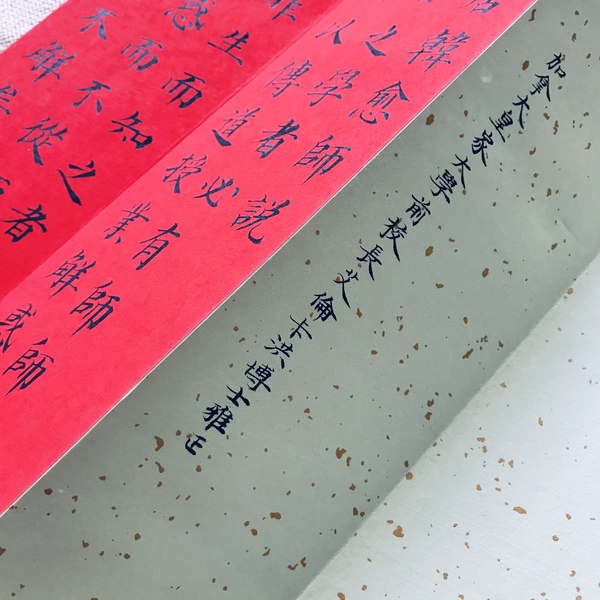 加拿大皇家大學前校長艾倫卡洪博士雅正
韓愈師說
之學者必有師師
以傳道授業解惑
非生而知之者
惑而不從
不解